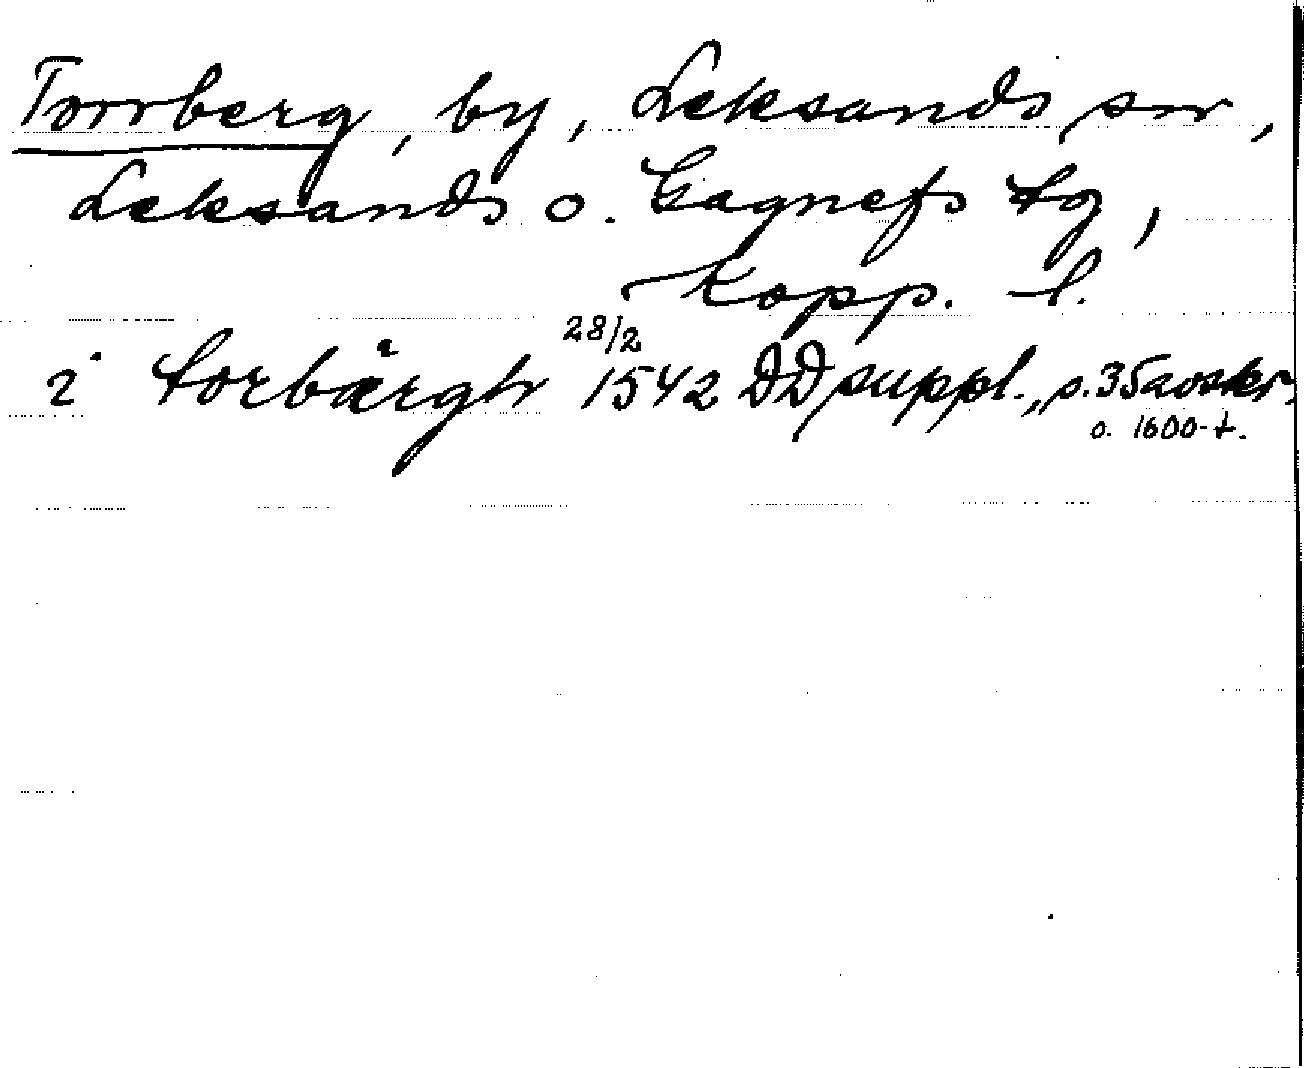 Torrberg, by, Leksands sn,
Leksands o. Gagnefs tg,
Kopp. l.
i torbårgh 28/2 1542 DD suppl., s. 35 avskr.
o. 1600-t.